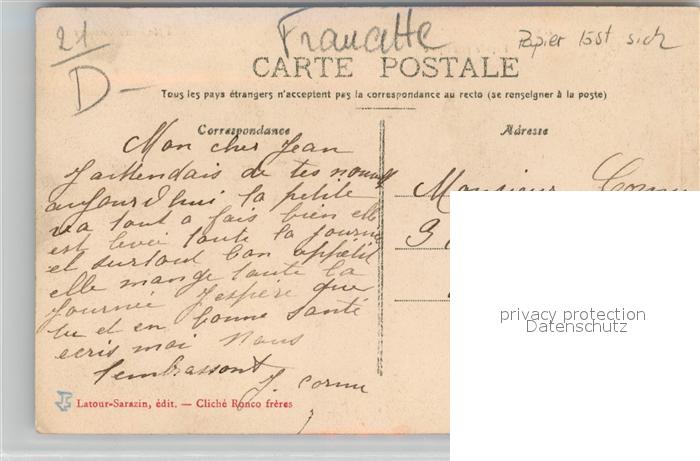 21
D-
Francette
Papier löst sich
CARTE POSTALE
Tous les pays étrangers n'acceptent pas la correspondance au recto (se renseigner à la poste)
Correspondance
Mon cher Jean
J'attendais de tes nouvelles
aujourd'hui la petite
va tout a fais bien elle
est levée toute la journée
et surtout bon appétit
elle mange toute la
journée J'espère que
tu et en bonne santé
ecris moi Nous
t'embrassont
J. Cornu
Adresse
Monsieur Cornu
3
privacy protection
Datenschutz
Latour-Sarazin, édit. — Cliché Ronco frères